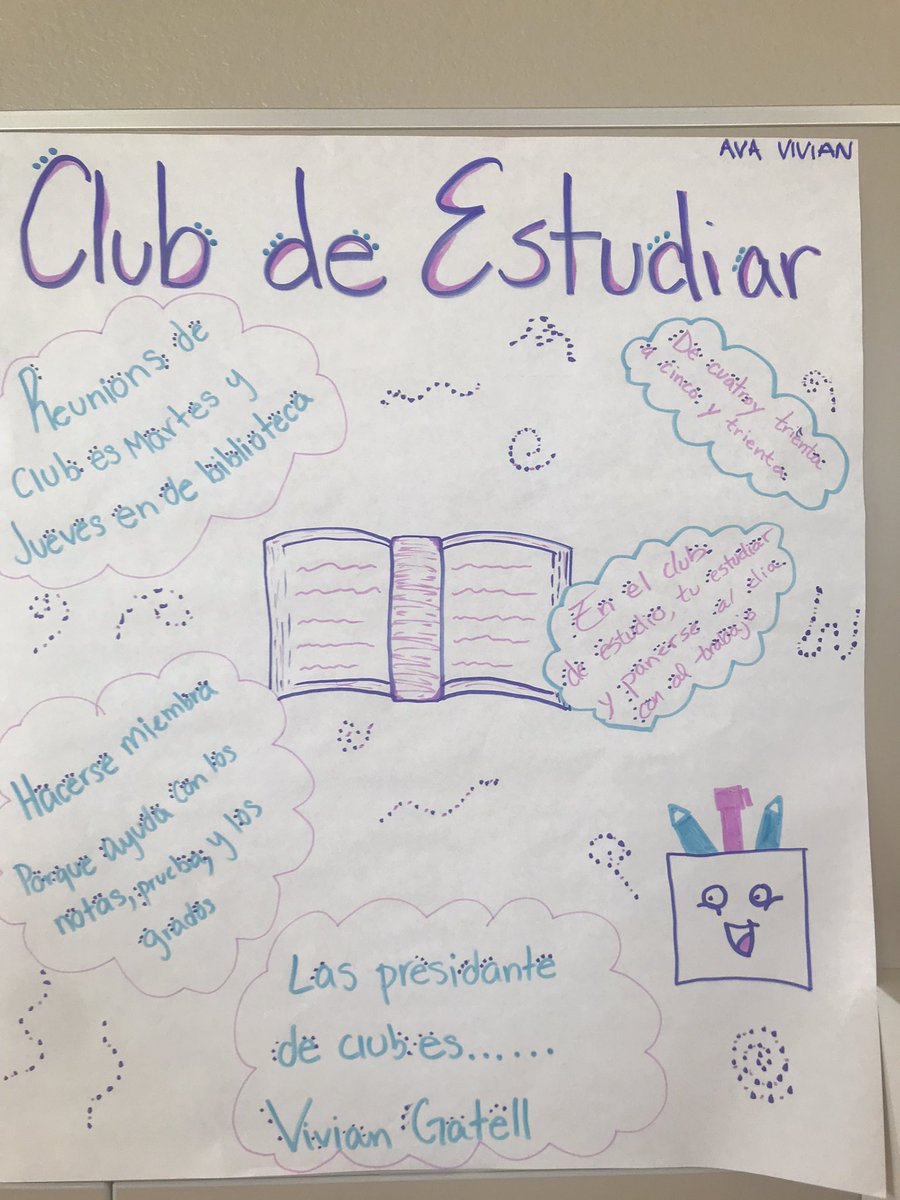 AVA VIVIAN
Club de Estudiar
Reunions de
club es Martes y
Jueves en de biblioteca
De cuatro y trienta
a cinco y trienta
En el club
de estudio, tu estudiar
y panerse al dia
con al trabajo
Hacerse miembra
Porque ayuda con los
notas, prueba, y los
grados
Las presidante
de club es......
Vivian Gatell